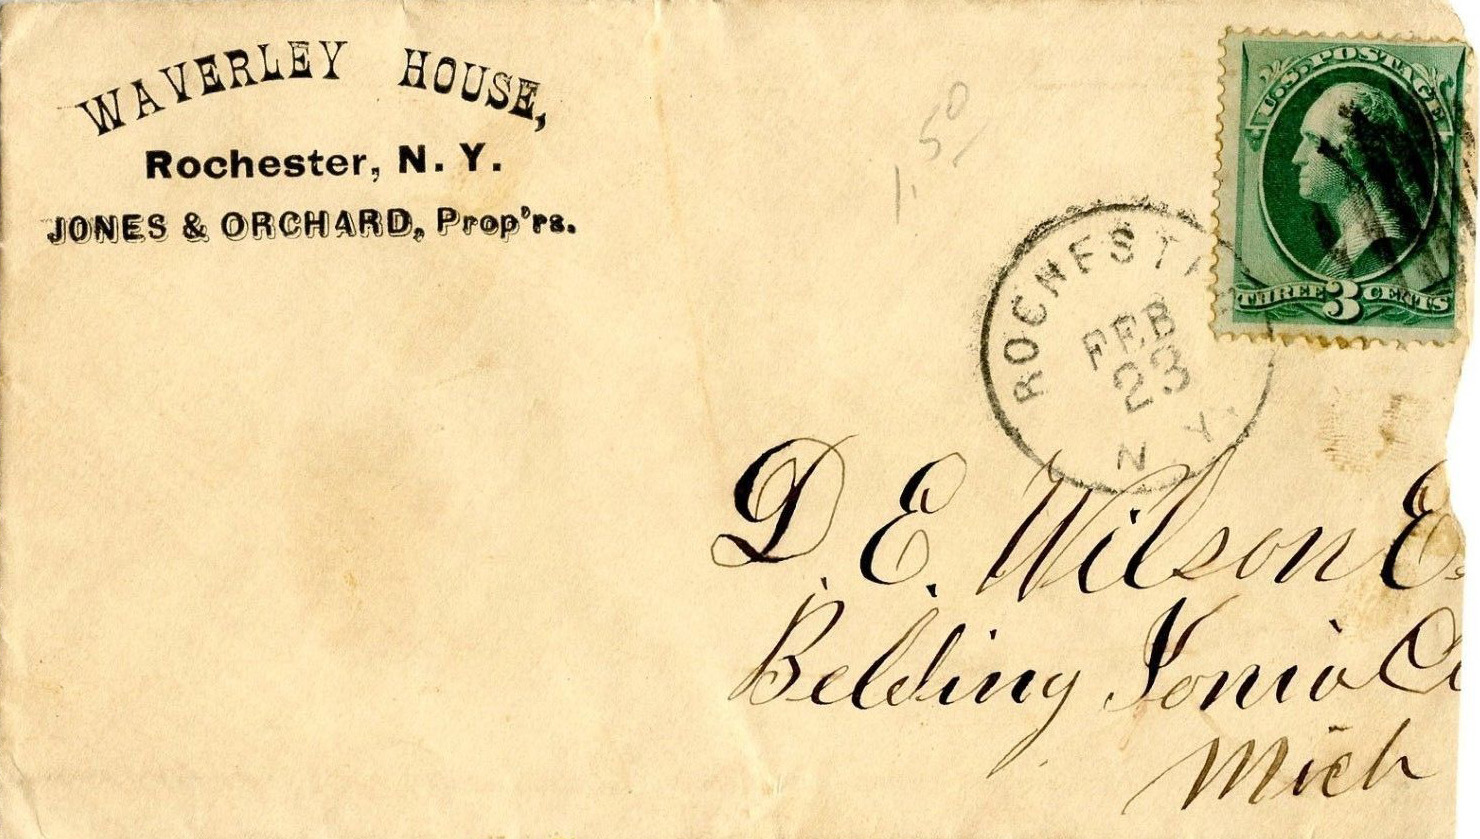 WAVERLEY HOUSE,
Rochester, N. Y.
JONES & ORCHARD, Prop'rs.
1.50
U.S. POSTAGE
THREE 3 CENTS
ROCHESTE
FEB
23
N. Y.
D. E. Wilson Es
Belding Ionia Co
Mich